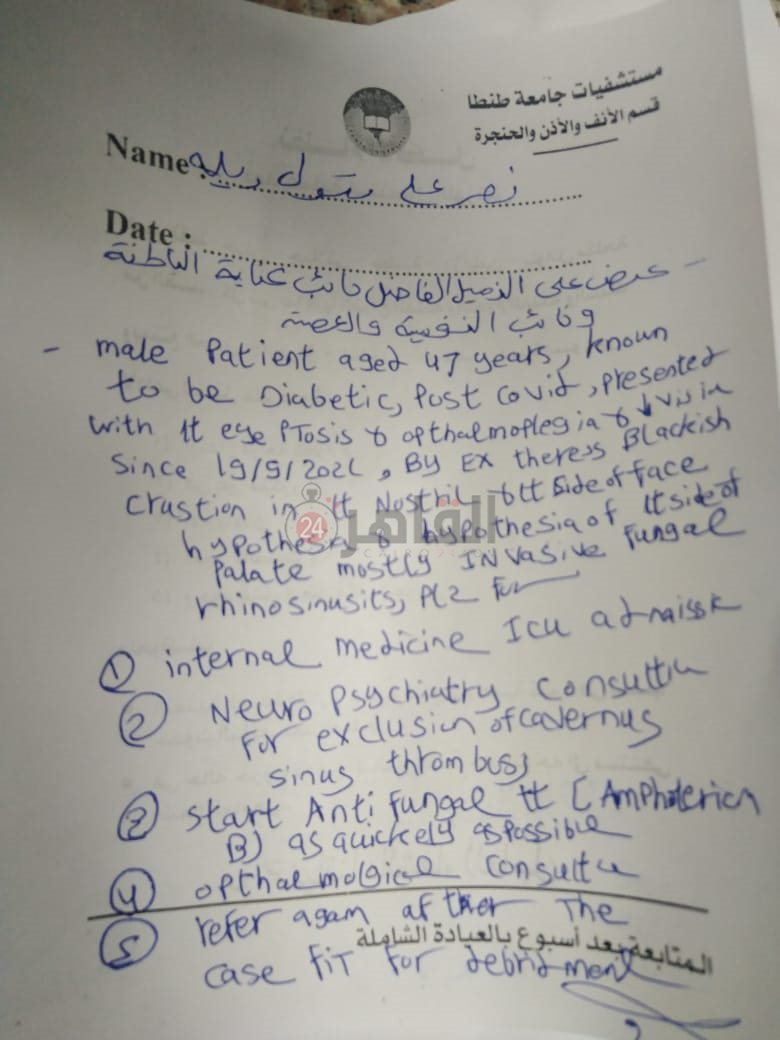 مستشفيات جامعة طنطا
قسم الأنف والأذن والحنجرة
Name: نصر على متولى
Date :
- عرض على الزميل الفاضل نائب عناية الباطنة
ونائب النفسية والعصبية
- male Patient aged 47 years, known
to be Diabetic, Post Covid, presented
with lt eye PTosis & opthalmoplegia & ↓ Vision
Since 19/5/2021, By EX theress Blackish
crustion in lt Nosthil & lt Side of face
hypothesia & hypothesia of lt side of
palate mostly INvasive Fungal
rhinosinusits, Plz For
① internal medicine Icu admaissk
② Neuro Psychiatry consultin
For exclusion of cavernus
sinus thrombuss
③ start Anti fungal tt [Amphoterich
B) as quickely as possible
④ opthalmolgical consultu
⑤ refer again afther The
المتابعة بعد أسبوع بالعيادة الشاملة
case FiT for debridment
القاهرة 24
CAIRO24.COM